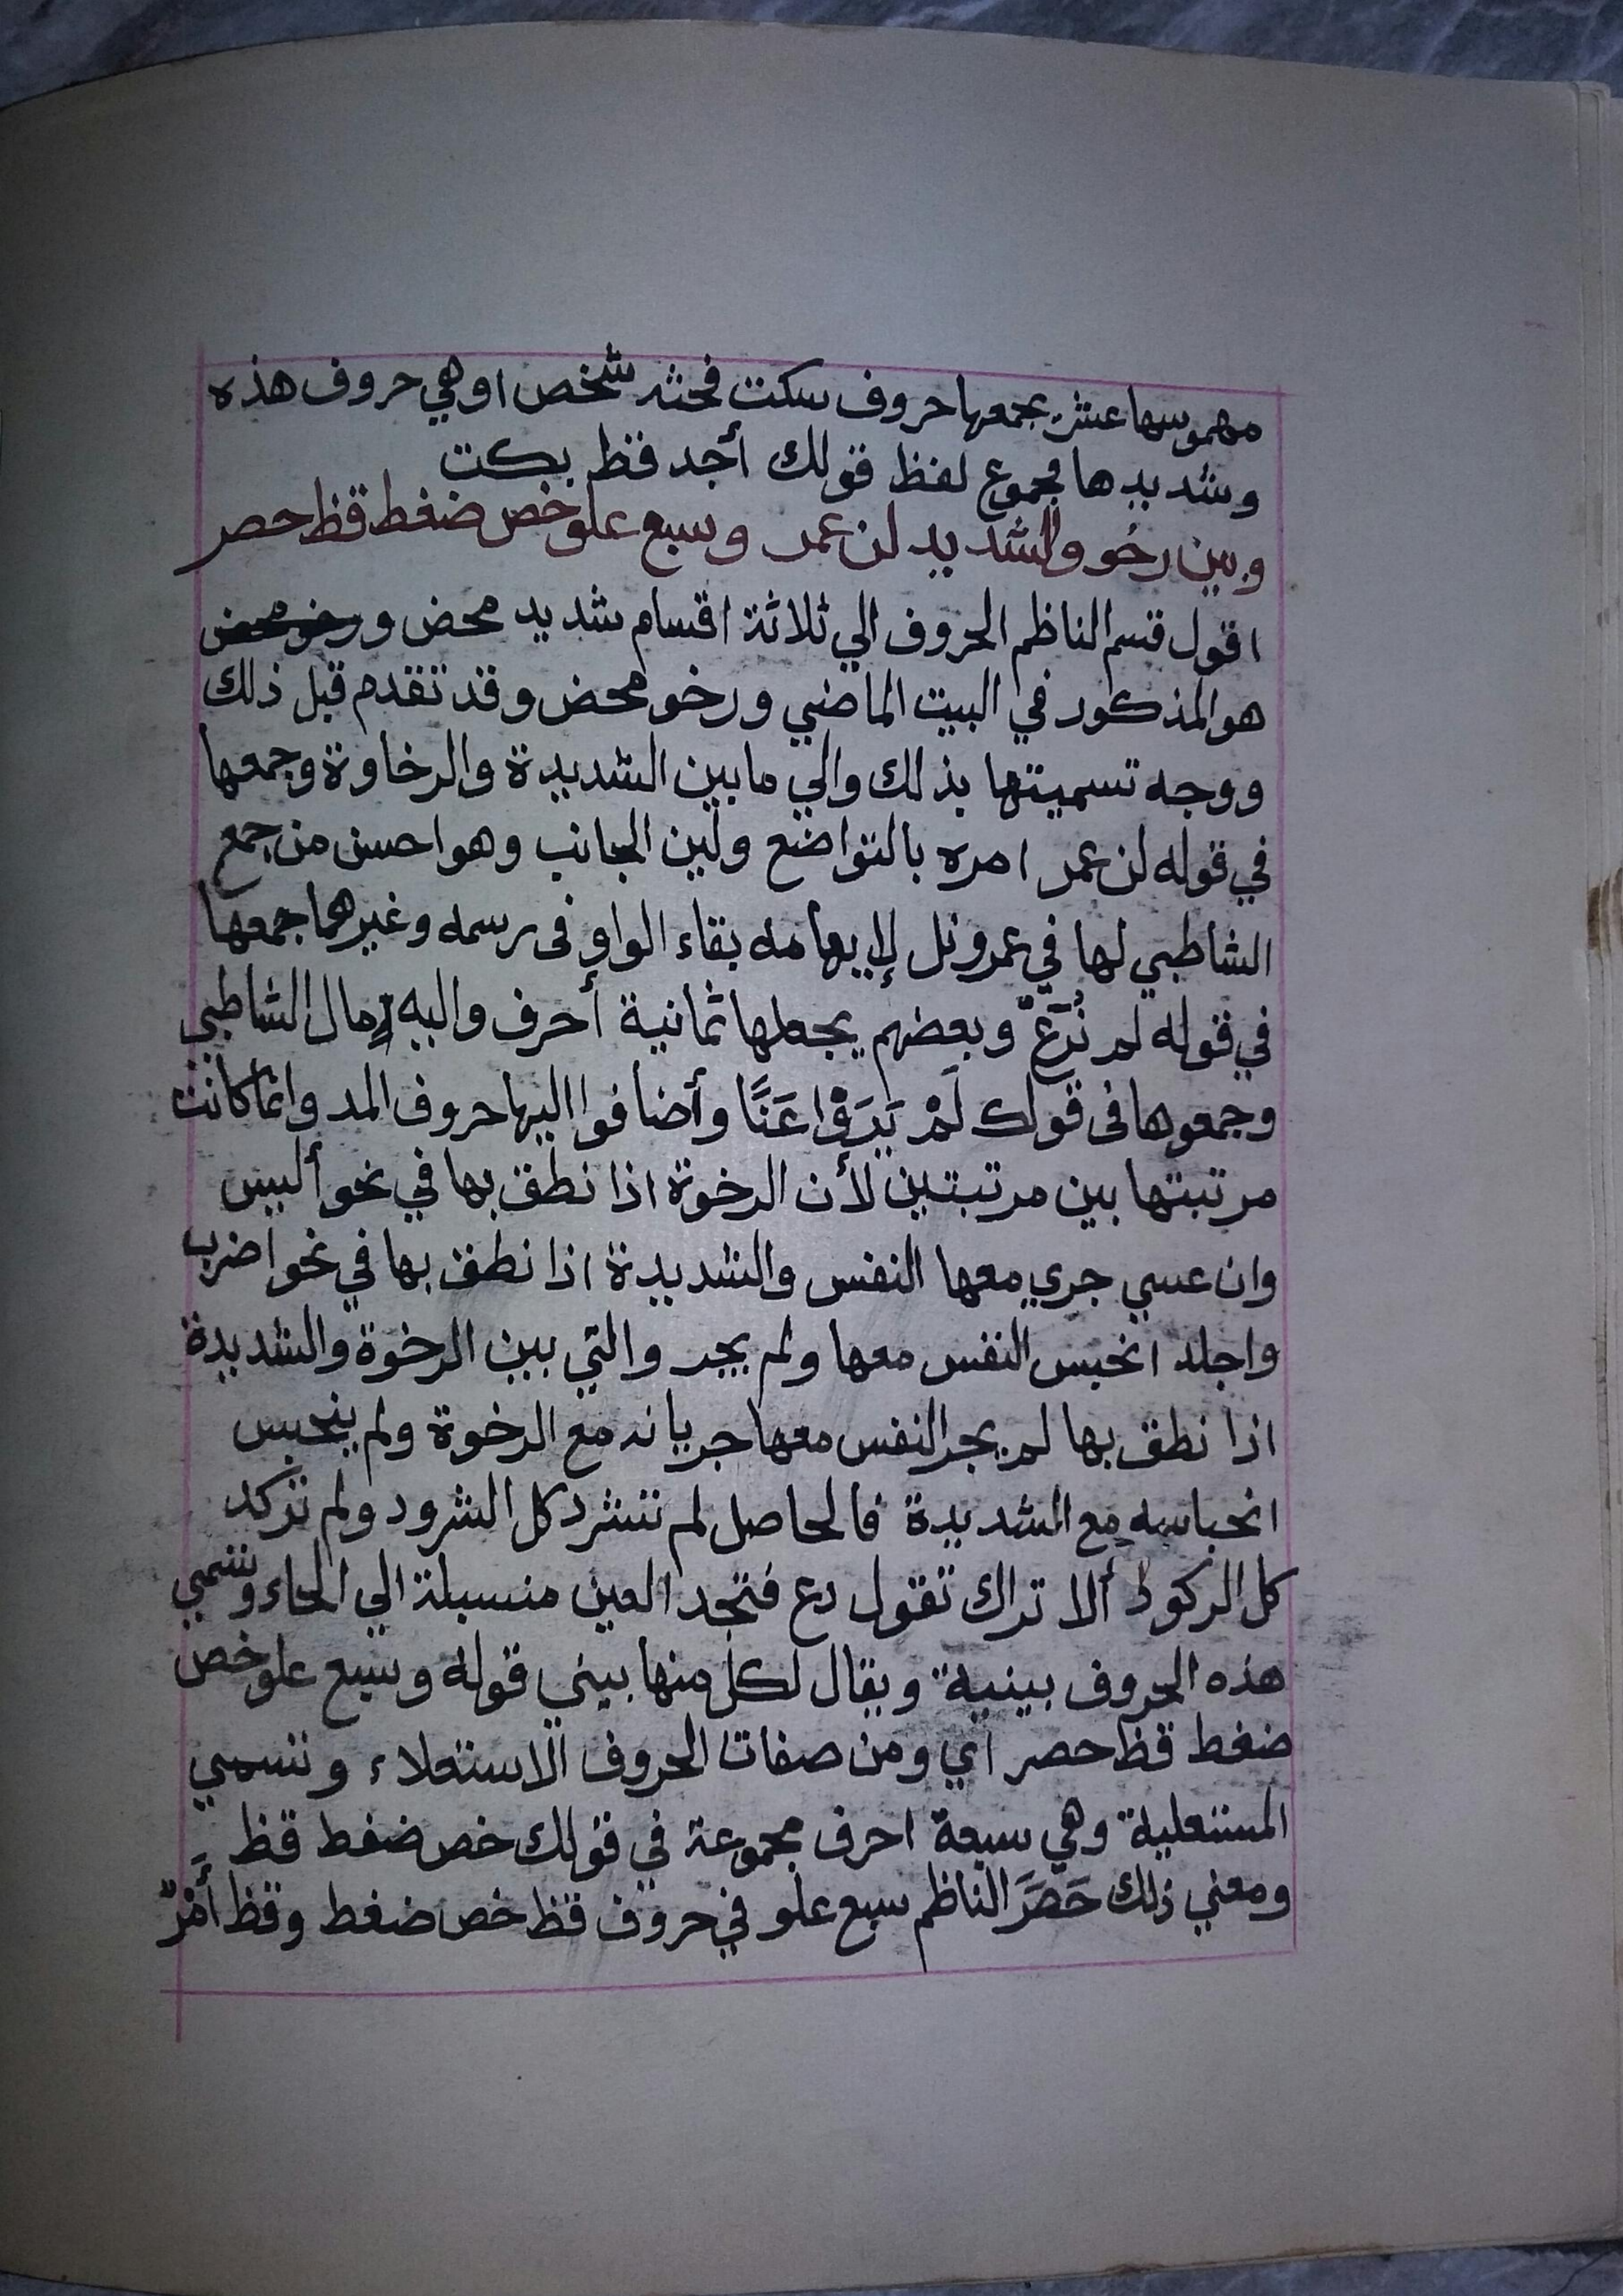 مهموسها عشر يجمعها حروف سكت فحثه شخص او هي حروف هذه
وشديدها مجموع لفظ قولك أجد قط بكت
وبين رخو والشديد لن عمر وسبع علو خص ضغط قظ حصر
اقول قسم الناظم الحروف الي ثلاثة اقسام شديد محض و رخو محض
هو المذكور في البيت الماضي ورخو محض وقد تقدم قبل ذلك
ووجه تسميتها بذلك والي ما بين الشديدة والرخاوة وجمعها
في قوله لن عمر امره بالتواضع ولين الجانب وهو احسن من جمع
الشاطبي لها في عمرو نل لإيهامه بقاء الواو فى رسمه وغيرهما جمعها
في قوله لم نُرَعّ وبعضهم يجعلها ثمانية أحرف واليه مال الشاطبي
وجمعوها فى قولك لَمْ يَرَوْا عَنَّا وأضافوا اليها حروف المد وانما كانت
مرتبتها بين مرتبتين لأن الرخوة اذا نطق بها في نحو ألبس
وان عسي جري معها النفس والشديدة اذا نطق بها في نحو اضرب
واجلد انحبس النفس معها ولم يجر والتي بين الرخوة والشديدة
اذا نطق بها لم يجر النفس معها جريانه مع الرخوة ولم ينحبس
انحباسه مع الشديدة فالحاصل لم تنشرد كل الشرود ولم تركد
كل الركود ألا تراك تقول رع فتجد العين منسبلة الي الحاء وتسمي
هذه الحروف بينية ويقال لكل منها بيني قوله وسبع علو خص
ضغط قظ حصر اي ومن صفات الحروف الاستعلاء وتسمي
المستعلية وهي سبعة احرف مجموعة في قولك خص ضغط قظ
ومعني ذلك حَصَرَ الناظم سبع علو في حروف قظ خص ضغط وقظ أَمْرٌ